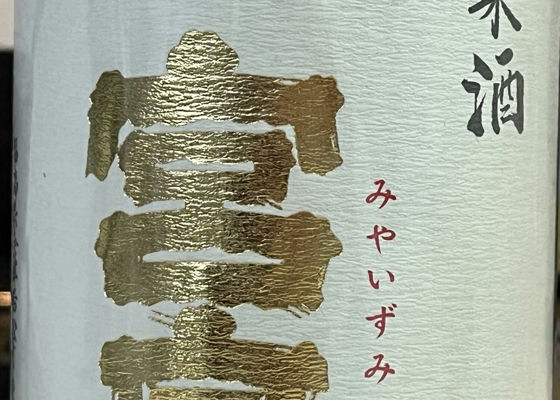 米酒
みやいずみ
宮